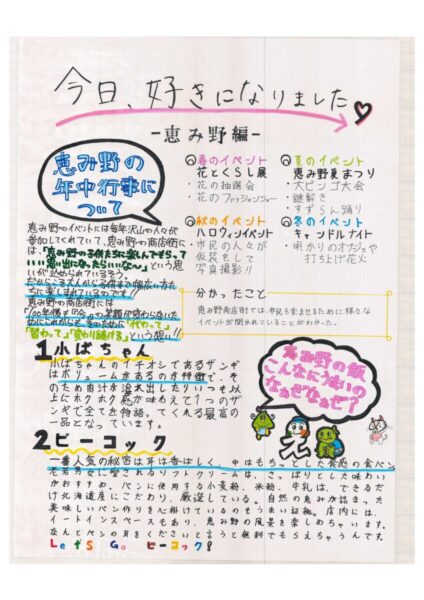 今日、好きになりました
-恵み野編-
恵み野の
年中行事に
ついて
恵み野のイベントには毎年沢山の人々が
参加してくれていて、恵み野の商店街に
は、「恵み野の子供たちに楽しんでもらって
いい思い出になったらいいな〜」という思
いが込められているそう。
だから子ども
ちに楽しまれているのです!!
恵み野の商店街には
「100年後も今日の笑顔が変わらないた
めに
「習わって」「変わり続ける」という想い!!
春のイベント
花とくらし展
・花の抽選会
・花のファッションショー
夏のイベント
恵み野夏まつり
・大ビンゴ大会
・謎解き
・すずらん踊り
秋のイベント
ハロウィンイベント
・市民の人々が
仮装をして
写真撮影!!
冬のイベント
キャンドルナイト
・明かりのオブジェや
打ち上げ花火
分かったこと
恵み野商店街では、市民を楽しませるために様々な
イベントが開かれていることがわかった。
1小ばちゃん
小ばちゃんのイチオシであるザンギ
はボリュームがあるのが特徴で、そ
のため肉汁が溢れ出したりいつも以
上にホクホク感が味わえて1つのザ
ンギで全てを物語ってくれる最高の
一品となっています。
恵み野の飯
こんなにうまいの
なぁぜなぁぜ?
え
2ピーコック
一番人気の秘密は耳は香ばしく、中はもちっとした食感の食パン
老若男女に愛されるソフトクリームは、さっぱりとした味わい
がおすすめ。パンに使用する小麦粉、米粉、牛乳は、できるだ
け北海道産にこだわり、厳選している。自然の恵みが詰まった
美味しいパン作りを心掛けているのもうまい証拠。店内には、
イートインスペースもあり、恵み野の風景を楽しめちゃいます。
なんとパンの耳をくださいと言うと無料でもらえちゃうんです
Let'S Go ピーコック!